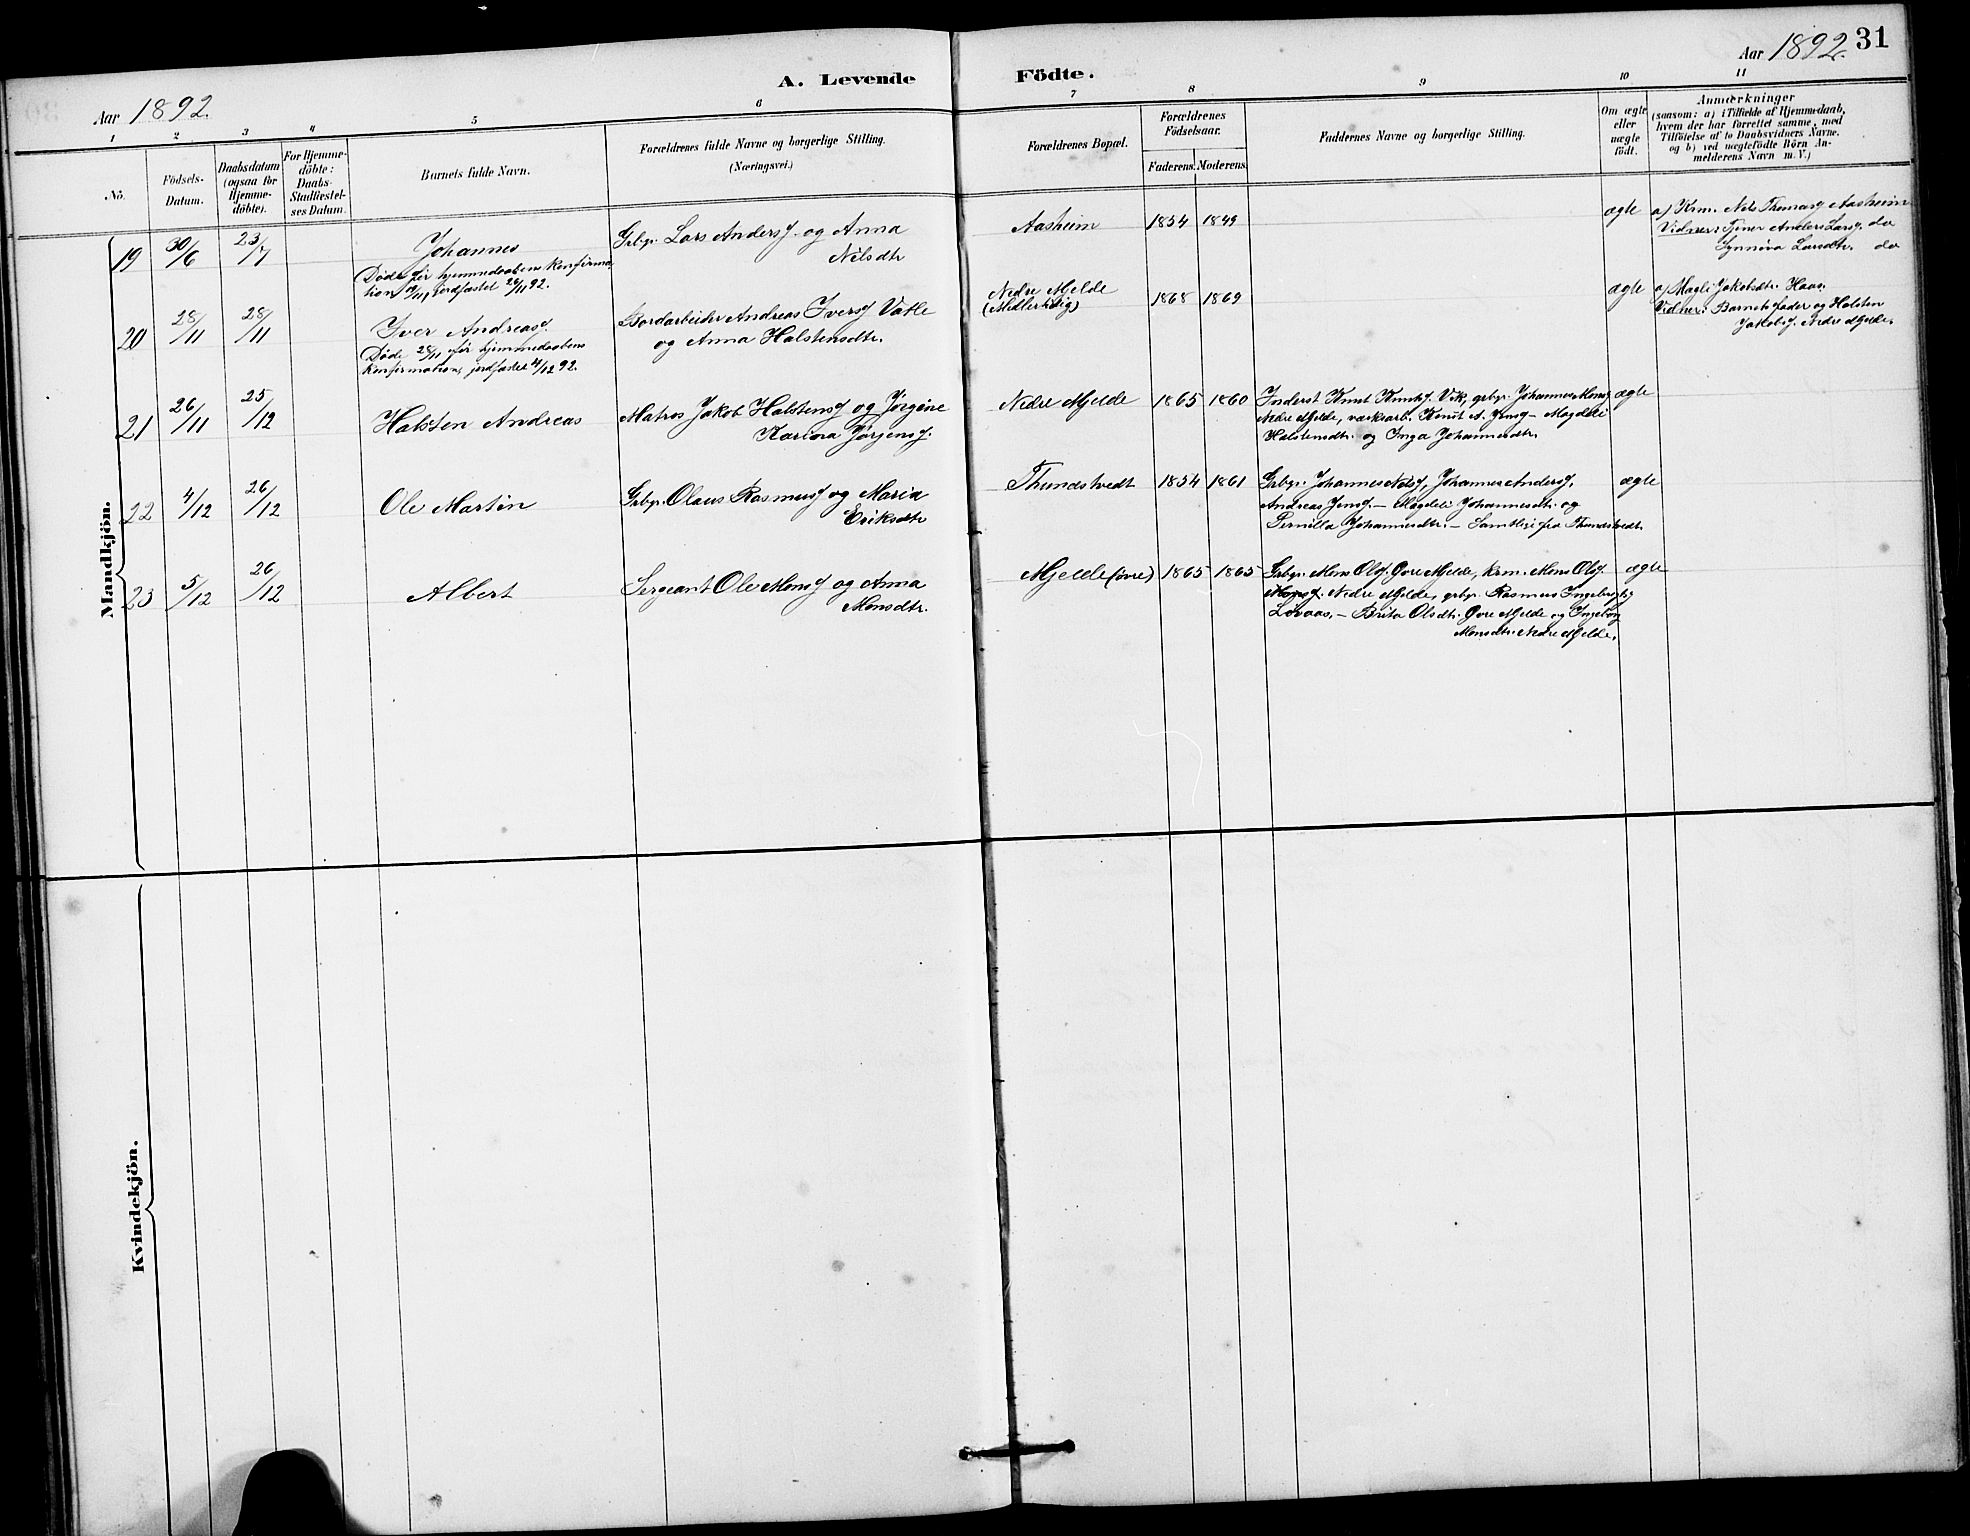 Aar 1892.
A. Levende Födte.
Aar 1892. 31
1 2 3 4 5 6 7 8 9 10 11
No.
Födsels-
Datum.
Daabsdatum
(ogsaa for
Hjemme-
döbte).
For Hjemme-
döbte:
Daabs-
Stadfæstel-
ses Datum.
Barnets fulde Navn.
Forældrenes fulde Navne og borgerlige Stilling.
(Næringsvei.)
Forældrenes Bopæl.
Forældrenes
Födselsaar.
Faderens. Moderens.
Faddernes Navne og borgerlige Stilling.
Om ægte
eller
uægte
födt.
Anmærkninger
(saasom: a) i Tilfælde af Hjemmedaab,
hvem der har forrettet samme, med
Tilföielse af to Daabsvidners Navne.
og b) ved uægtefödte Börn An-
melderens Navn m. V.)
Mandkjön.
19 30/6 23/7 Johannes
Døde før hjemmedaabens Konfirma-
tion 19/11, jordfæstet 26/11 92.
Grbgr. Lars Anders. og Anna
Nilsdtr
Aasheim 1854 1849 ægte
a) Krm. Nils Thomas. Aasheim
Vidner: Tjener Anders Lars. do
Synnøva Larsdtr. do
20 28/11 28/11 Iver Andreas.
Døde 28/11 før hjemmedaabens
Konfirmation, jordfæstet 4/12 92.
Bordarbeider Andreas Ivers. Vatle
og Anna Halstensdtr.
Nedre Mjelde
(Midlertidig)
1868 1869 ægte
a) Magli Jakobsdtr. Haas.
Vidner: Barnets fader og Halsten
Jakobs. Nedre Mjelde.
21 26/11 25/12 Halsten Andreas
Matros Jakob Halstens. og Jørgine
Karina Jørgens.
Nedre Mjelde 1865 1860
Inderst Knut Knuts. Vik, grbgr. Johannes Mons.
Nedre Mjelde, værksarb. Knut A. Jens. - Magdeli
Halstensdtr. og Inga Johannesdtr.
ægte
22 4/12 26/12 Ole Martin
Grbgr. Olaus Rasmus. og Maria
Eriksdtr
Thunestvedt 1854 1861
Grbgr. Johannes Nels., Johannes Anders.,
Andreas Jens. - Magdeli Johannesdtr. og
Pernilla Johannesdtr. - Samtlige fra Thunestvedt.
ægte
23 5/12 26/12 Albert
Sergeant Ole Mons. og Anna
Monsdtr.
Mjelde (øvre) 1865 1865
Grbgr. Mons Ols. Øvre Mjelde, Krm. Mons Ols.
Nedre Mjelde, grbgr. Rasmus Ingebrigts.
Lovaas, - Brita Olsdtr. Øvre Mjelde og Ingeborg
Monsdtr. Nedre Mjelde.
ægte
Kvindekjön.